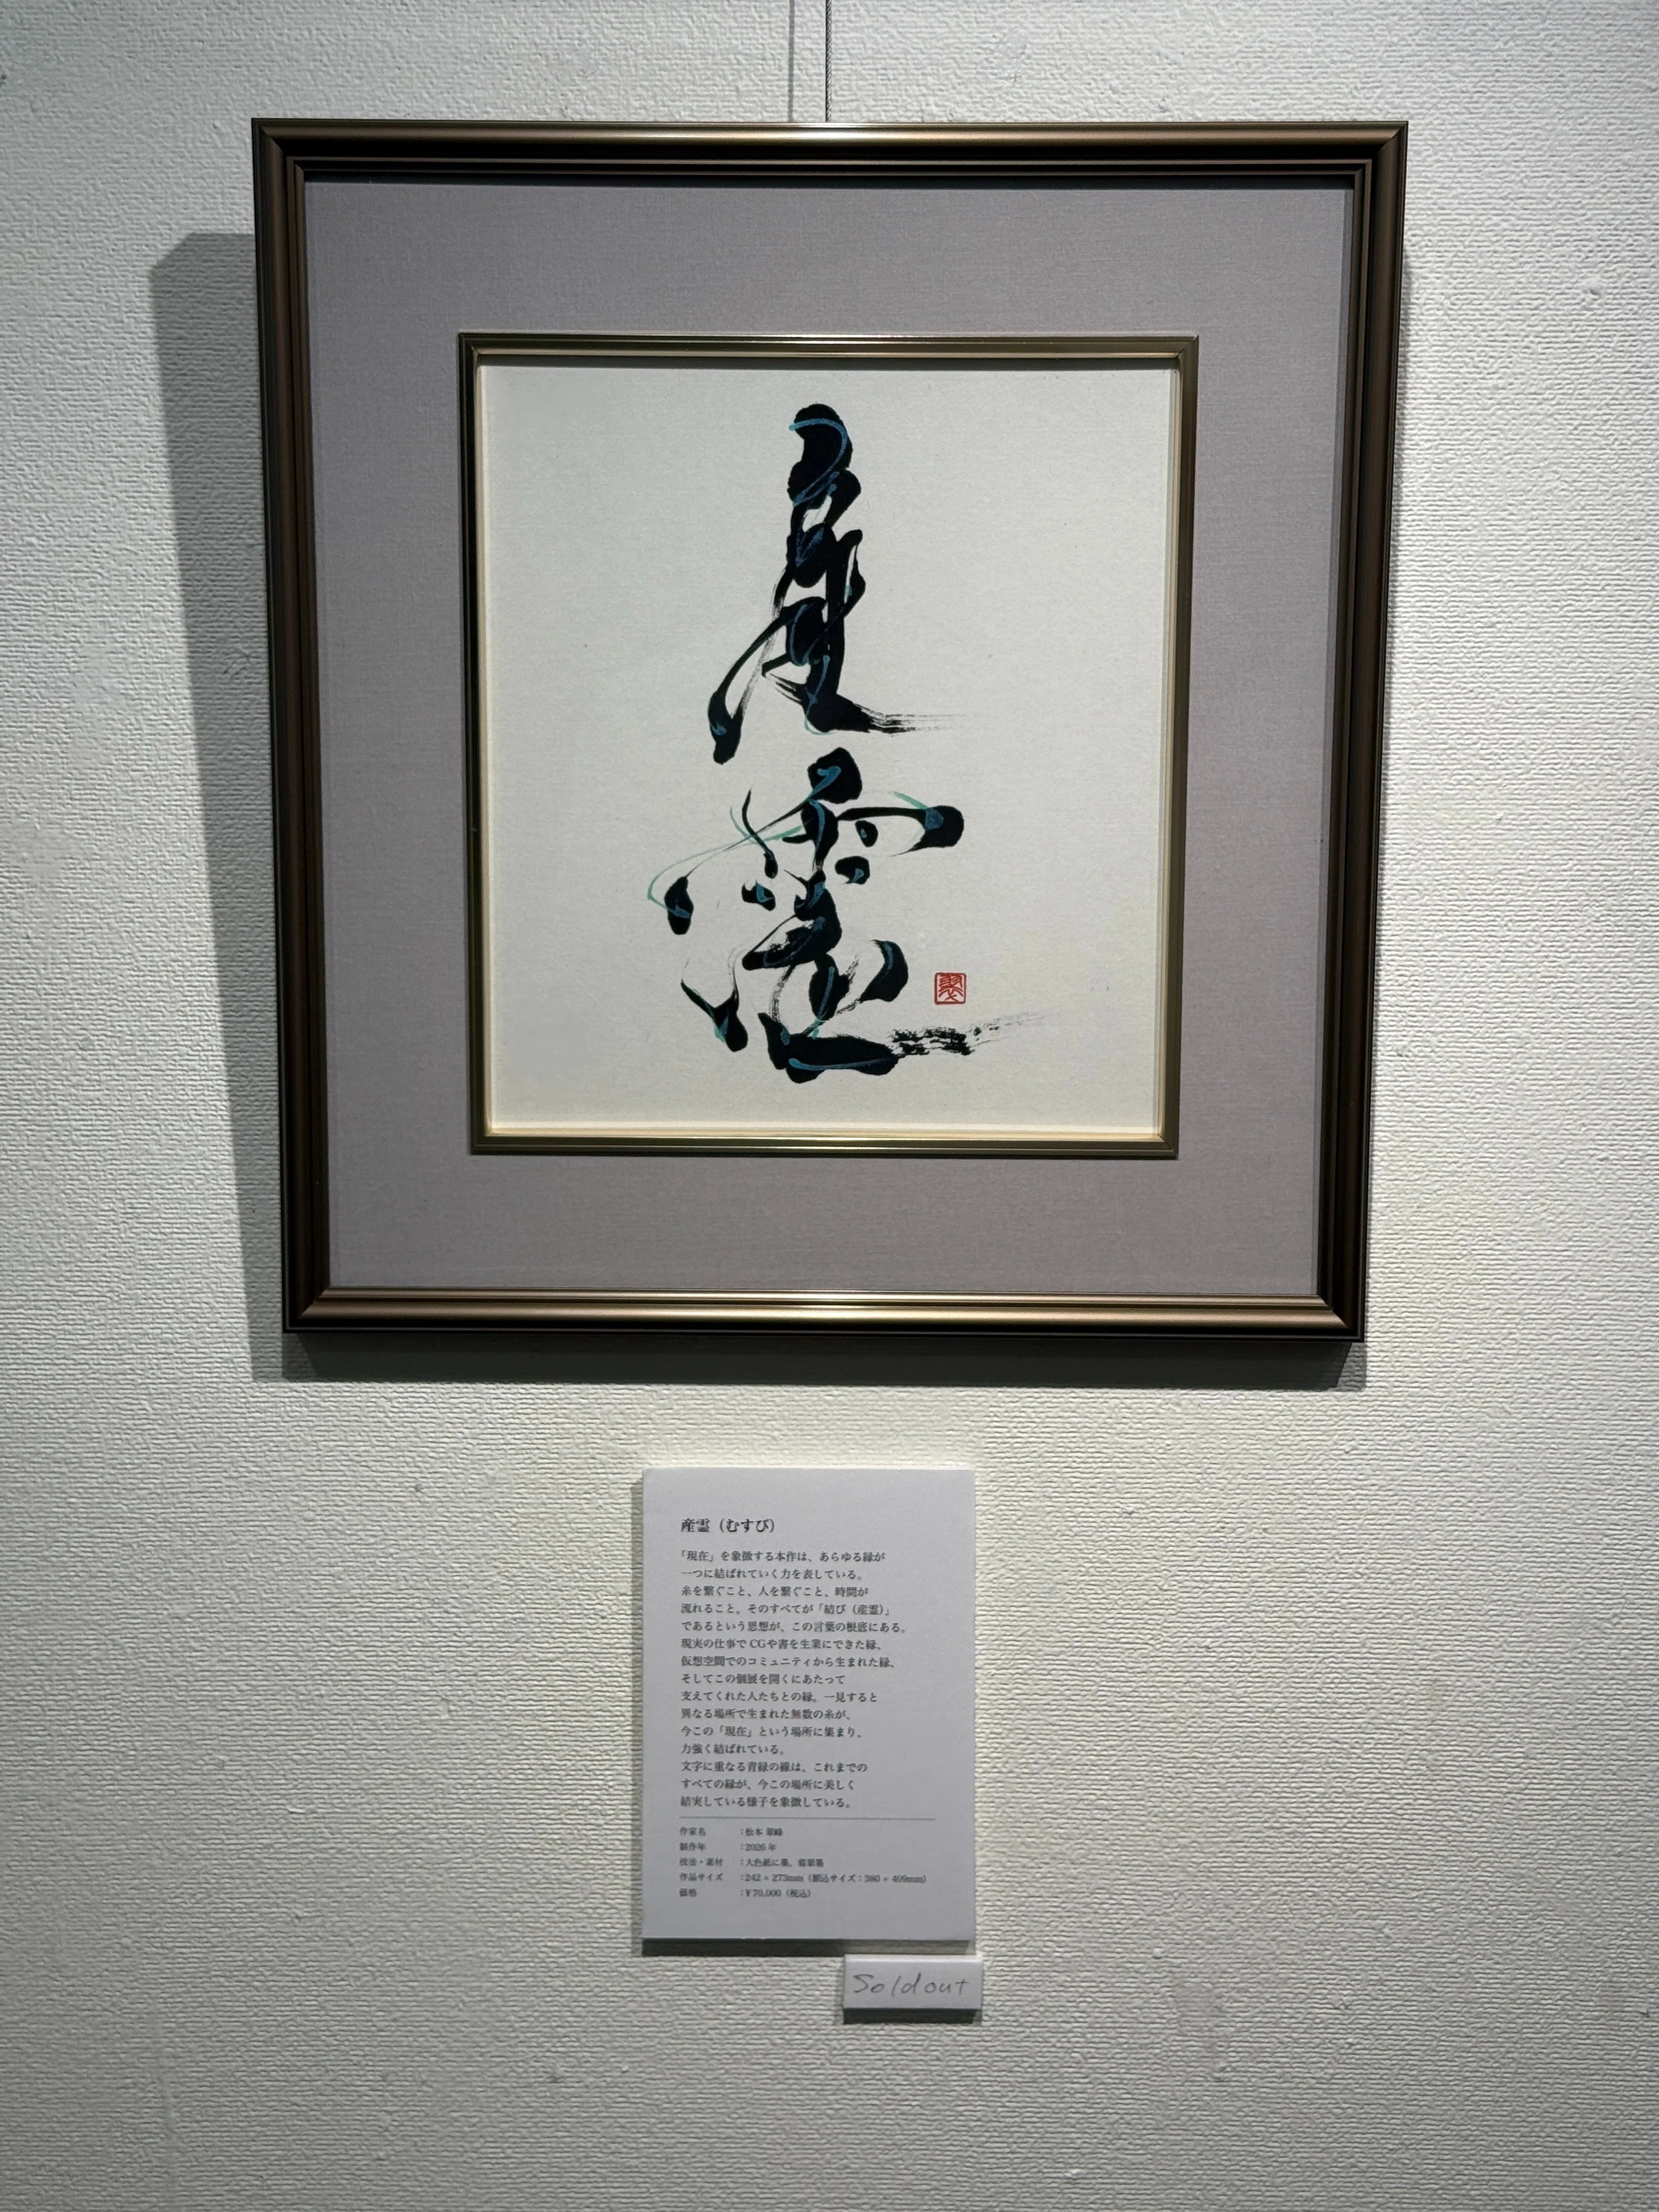 産霊
産霊（むすび）
「現在」を象徴する本作は、あらゆる縁が
一つに結ばれていく力を表している。
糸を繋ぐこと、人を繋ぐこと、時間が
流れること。そのすべてが「結び（産霊）」
であるという思想が、この言葉の根底にある。
現実の仕事でCGや書を生業にできた縁、
仮想空間でのコミュニティから生まれた縁、
そしてこの個展を開くにあたって
支えてくれた人たちとの縁。一見すると
異なる場所で生まれた無数の糸が、
今この「現在」という場所に集まり、
力強く結ばれている。
文字に重なる青緑の線は、これまでの
すべての縁が、今この場所に美しく
結実している様子を象徴している。
作家名 ：松本 翠峰
制作年 ：2026 年
技法・素材 ：大色紙に墨、翡翠墨
作品サイズ ：242 × 273mm（額込サイズ：380 × 409mm）
価格 ：￥70,000（税込）
Soldout